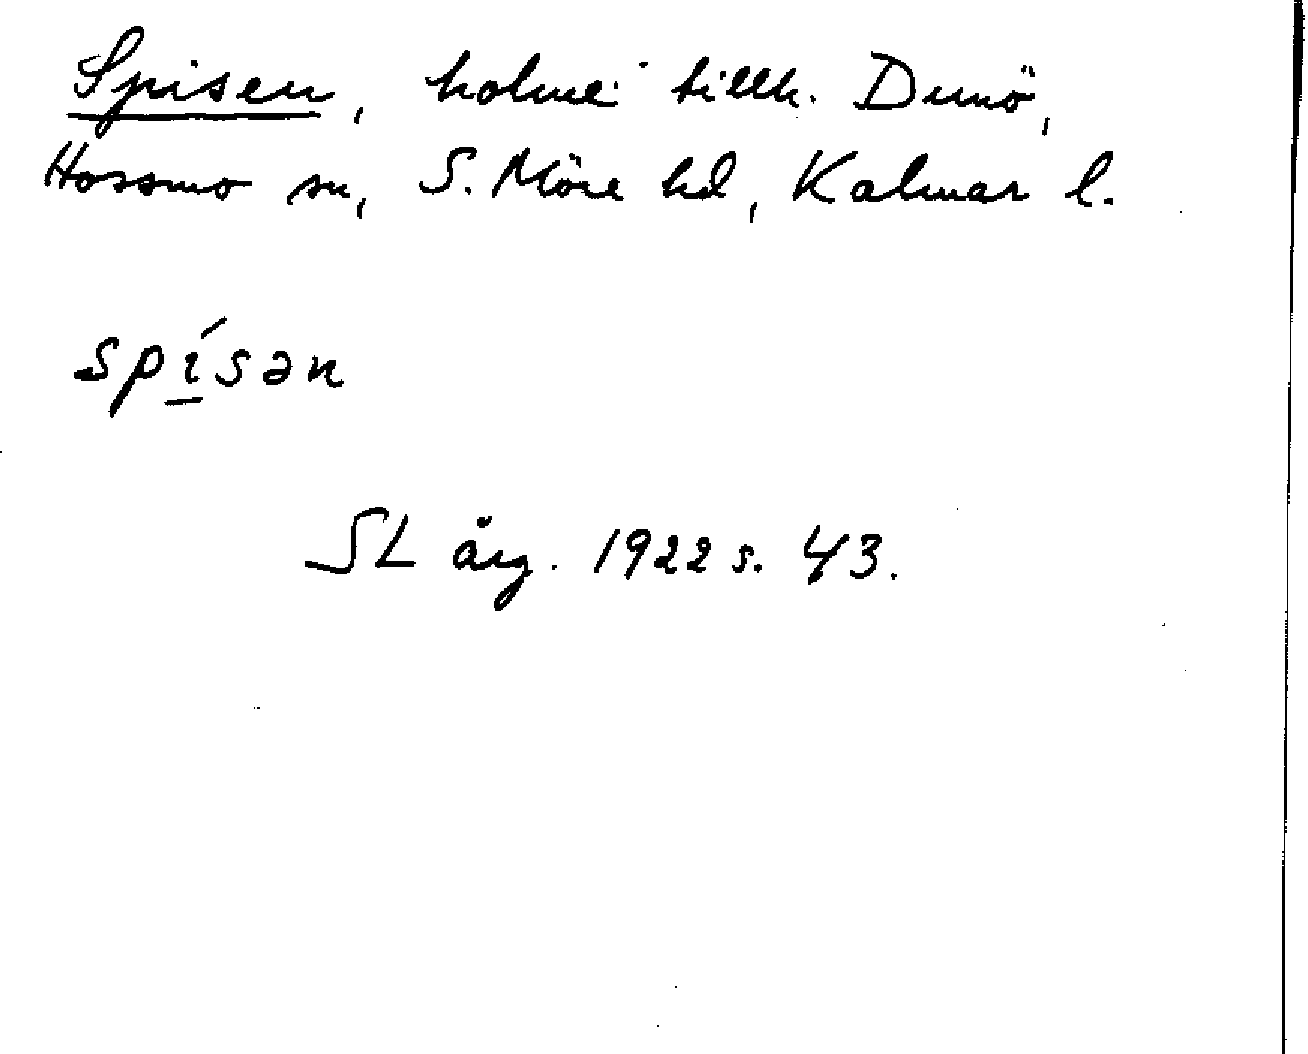 Spisen, holme tillh. Dunö,
Hossmo sn, S. Möre hd, Kalmar l.
spí̲sən
SL årg. 1922 s. 43.